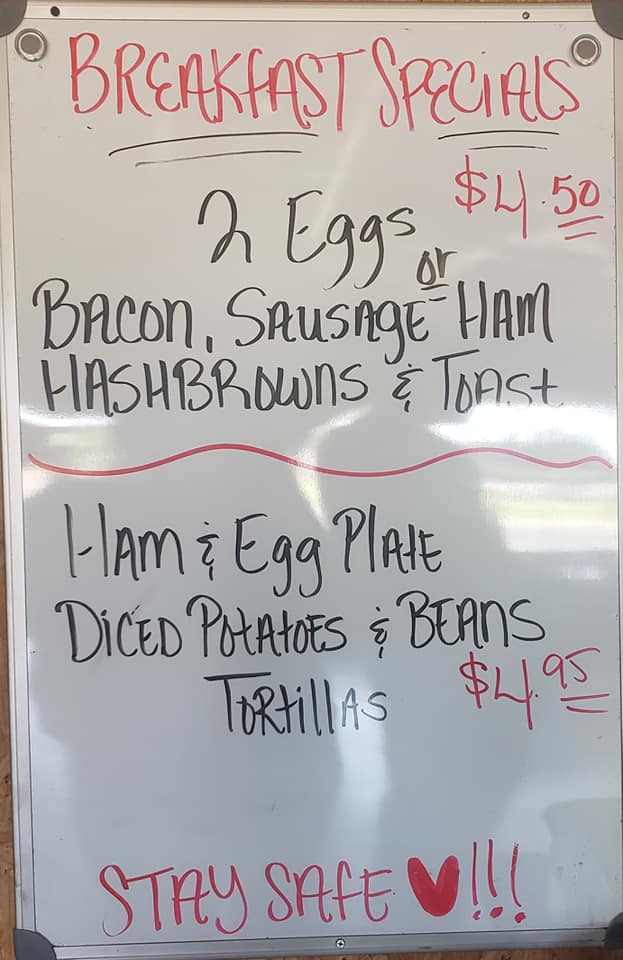 BREAKFAST SPECIALS
$4.50
2 Eggs
or
BACON, SAUSAGE HAM
HASHBROWNS & TOAST
HAM & Egg PlATE
DiCED POTATOES & BEANS
TORtillAS
$4.95
STAY SAFE ♥!!!